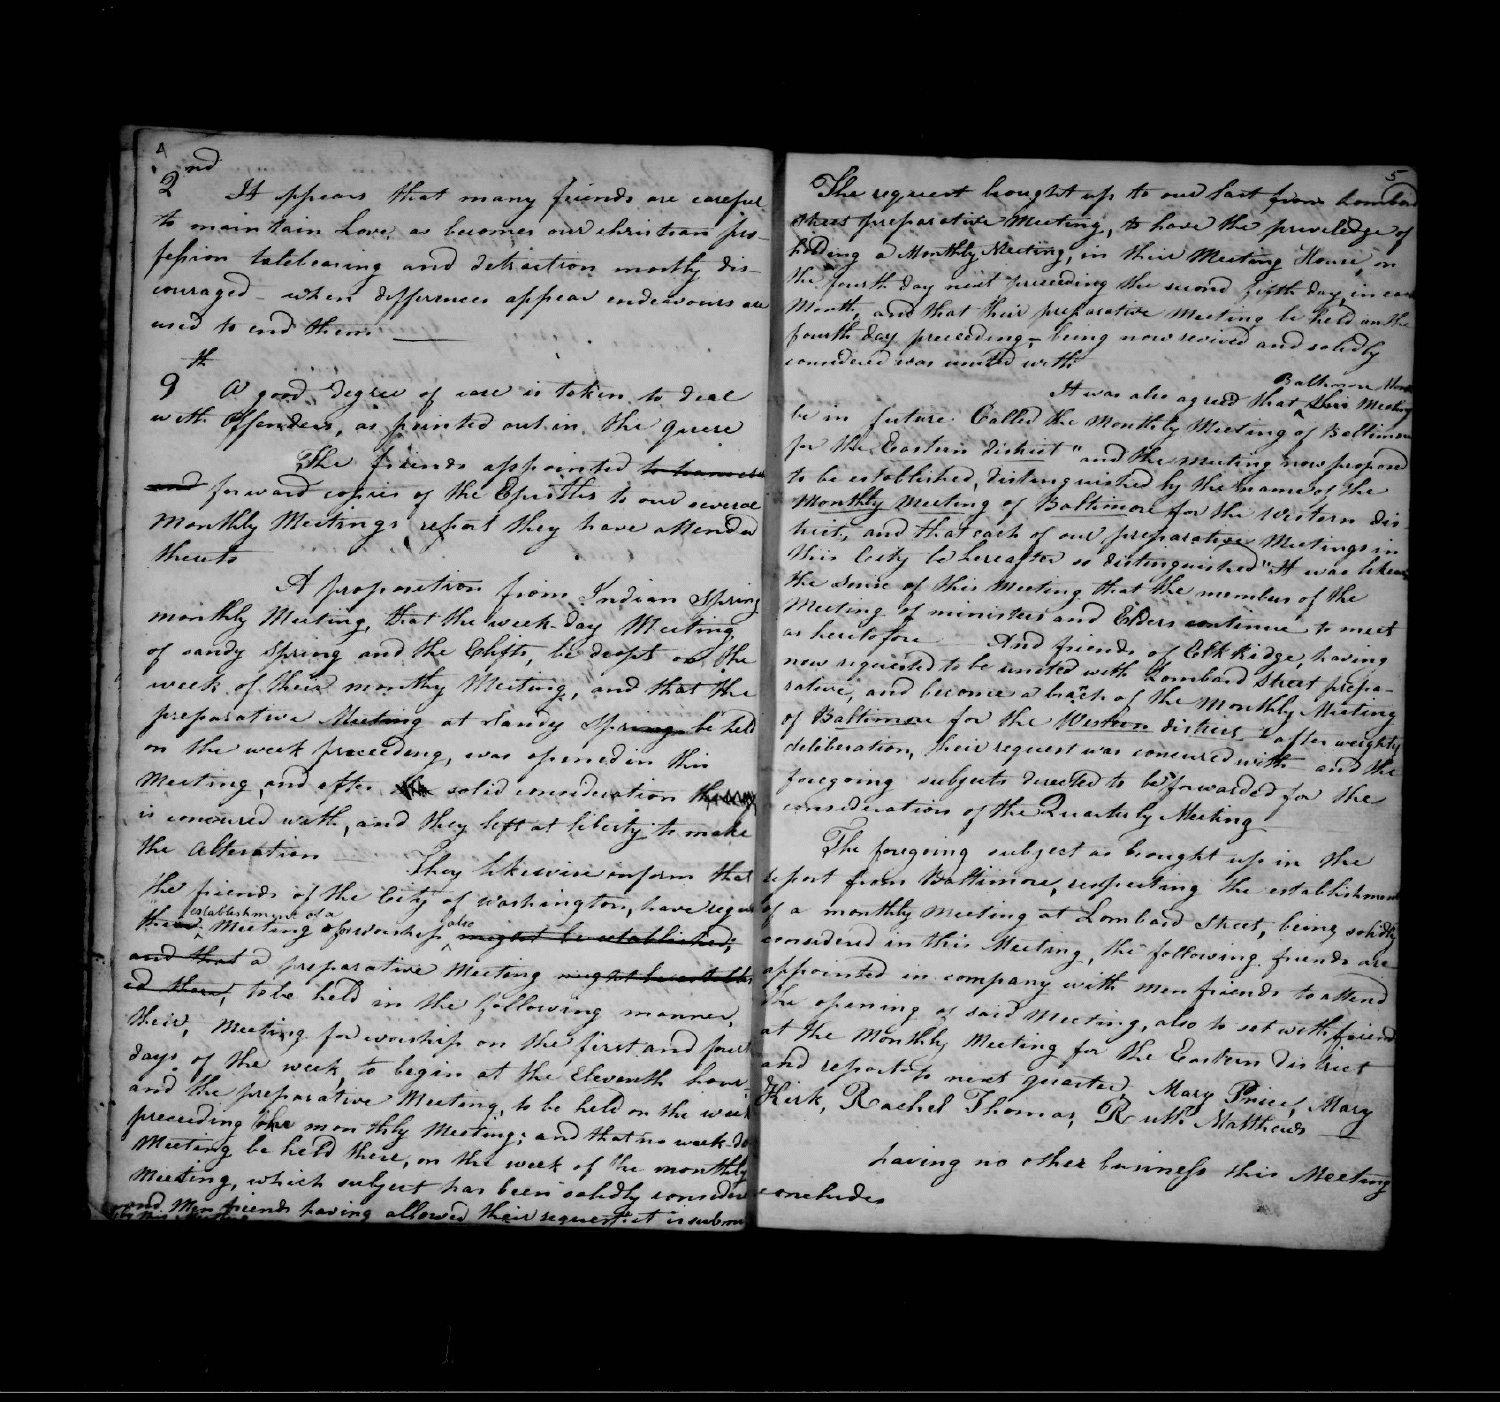 4
2nd It appears that many friends are careful
to maintain Love, as becomes our christian pro-
fession talebearing and detraction mostly dis-
couraged - when differences appear endeavours are
used to end them.
9th A good degree of care is taken to deal
with offenders, as pointed out in the quere
The friends appointed to transcribe
and forward copies of the Epistles to our several
Monthly Meetings report they have attended
thereto
A proposition from Indian Spring
monthly Meeting, that the week-day Meeting
of sandy Spring and the Clifts, be dropt on the
week of their monthly Meeting, and that the
preparative Meeting at Sandy Spring be held
on the week preceedeng, was opened in this
Meeting, and after solid consideration
is concured with, and they left at liberty to make
the alteration They likewise inform that
the friends of the City of Washington, have reques
establishment of a also
Meeting for worship, might be established;
and that a preparative Meeting might be establish
ed there, to be held in the following manner,
their, Meeting for worship on the first and fourth
days of the week, to begin at the Eleventh hour
and the preparative Meeting, to be held on the week
preceeding the monthly Meeting; and that no week-day
Meeting be held there, on the week of the monthly
Meeting, which subject has been solidly consider
and Men friends having allowed their request it is submi
5
The request brought up to our last from Lombard
street preparative Meeting, to have the priviledge of
holding a Monthly Meeting, in their Meeting House, on
the fourth day next preceeding the second fifth day, in each
Month, and that their preparative Meeting be held on the
fourth day preceeding, - being now revived and solidly
considered was united with
Baltimore
It was also agreed that this Meeting
be in future Called the Monthly Meeting of Baltimore
for the Eastern district" and the Meeting now proposed
to be established, distinguished by the name of the
Monthly Meeting of Baltimore for the Western dis-
trict, and that each of our preparative Meetings in
this City be hereafter so distinguished" It was likewise
the sense of this Meeting that the members of the
Meeting of ministers and Elders continue to meet
as heretofore And friends of Elkridge, having
now requested to be united with Lombard Street prepa-
rative, and become a brach of the Monthly Meeting
of Baltimore for the Western district & after weighty
deliberation, their request was concured with and the
foregoing subjects directed to be forwarded for the
consideration of the Quarterly Meeting
The foregoing subject as brought up in the
report from Baltimore, respecting the establishment
of a monthly Meeting at Lombard Street, being solidly
considered in this Meeting, the following friends are
appointed in company with men friends to attend
the opening of said Meeting, also to set with friends
at the Monthly Meeting for the Eastern district
and report to next quarter, Mary Price, Mary
Kirk, Rachel Thomas, Ruth Matthews
having no other business this Meeting
concludes